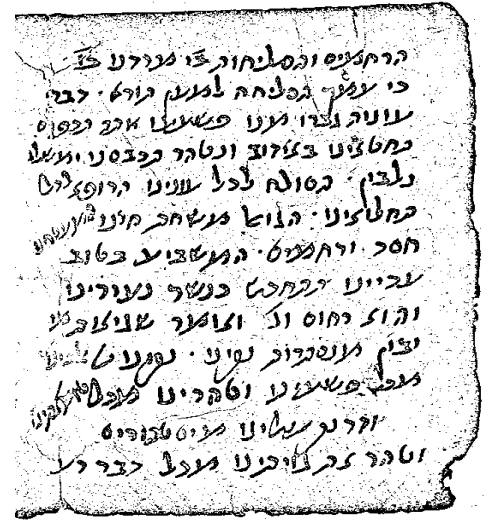 הרחמים והסליחות כי מרדנו בו
כי עמך הסליחה למען תורא · דברי
עונות גברו מנו פשעינו אתה תכפרם
תחטאינו באזוב ונטהר תכבסנו ומשלג
נלבין · הסולח לכל עונינו הרופא לכל
תחלואינו · הגואל משחת חיינו המעטרינו
חסד ורחמים · המשביע בטוב
עדיינו תתחדש כנשר נעורינו
והוא רחום וג ואומר שגיאות מי
יבין מנסתרות נקינו · נקינו
מכל פשעינו וטהרינו מכל
וזרוק עלינו מים טהורים
וטהר את לבינו מכל דבר רע